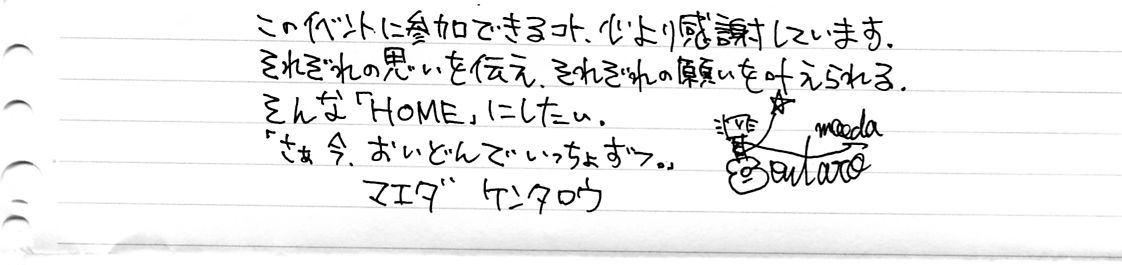 このイベントに参加できるコト、心より感謝しています.
それぞれの思いを伝え、それぞれの願いを叶えられる.
そんな「HOME」にしたい.
「さぁ 今、おいどんでいっちょずつ。」
マエダ ケンタロウ
maeda